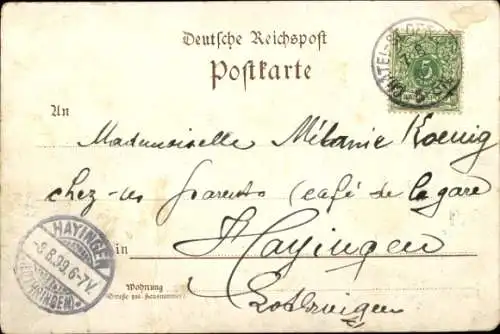 Deutsche Reichspost
Postkarte
5
An
Mademoiselle Mélanie Koenig
chez ses parents (café de la gare
in Hayingen
HAYINGEN
-8.8.99.6-7V.
(LOTHRINGEN)
Wohnung
(Straße und Hausnummer)
Lothringen